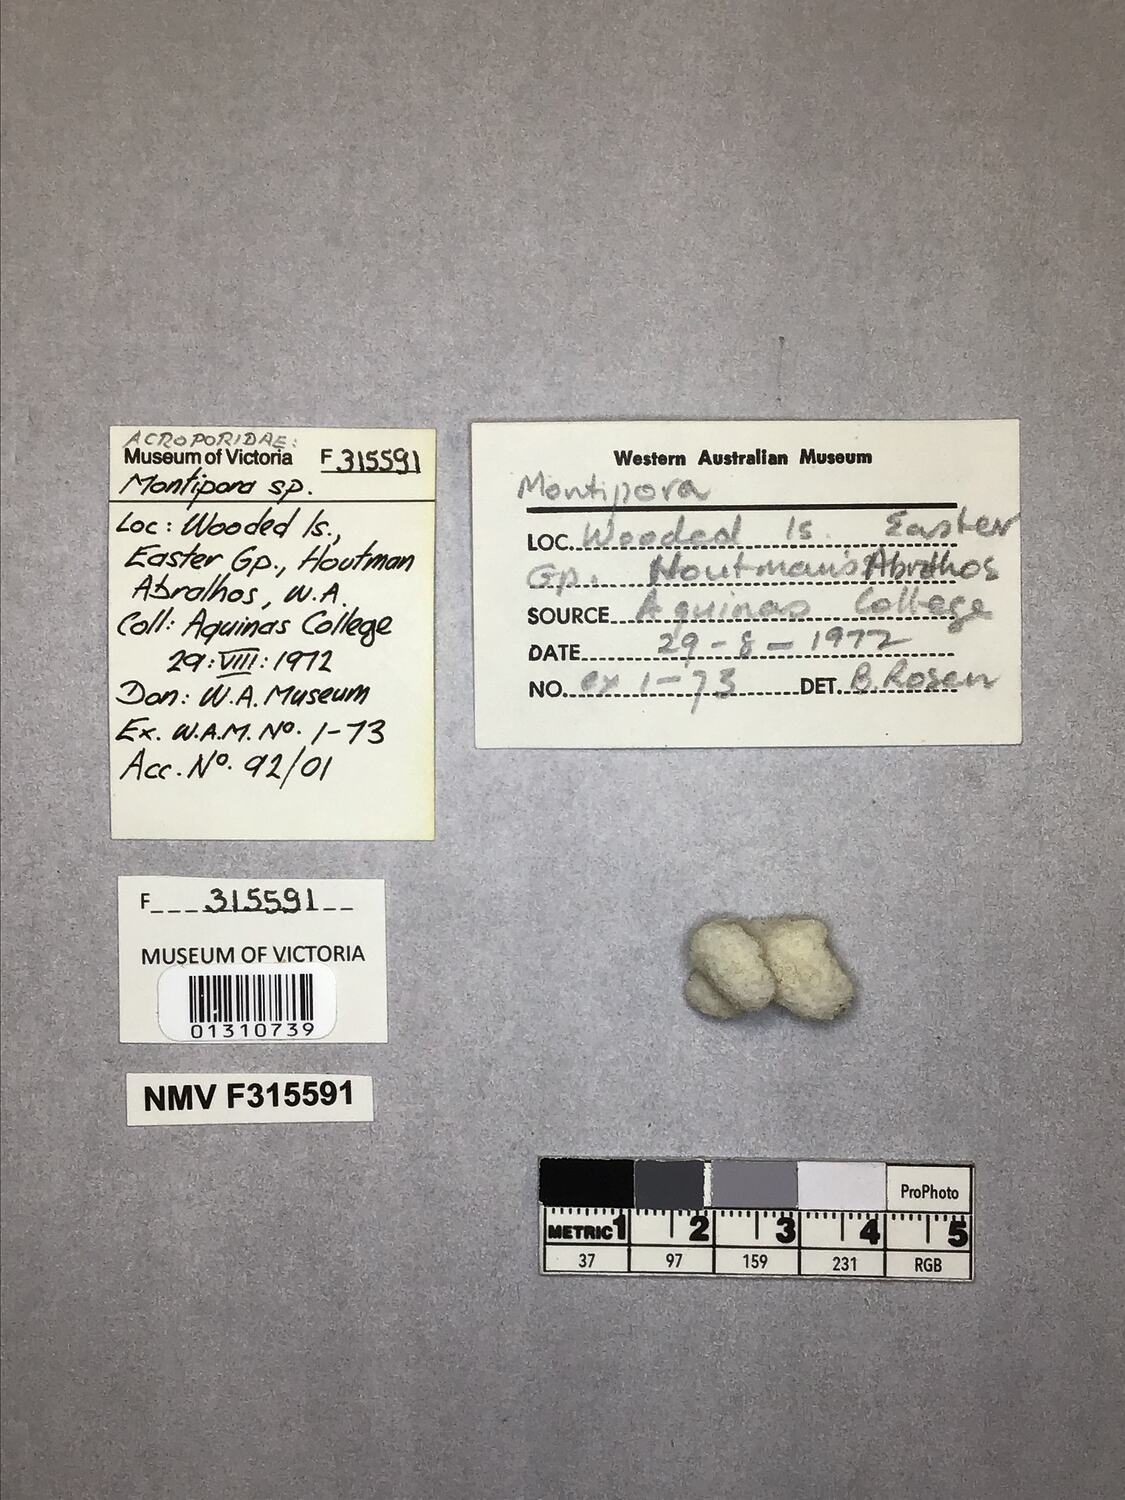 ACROPORIDAE:
Museum of Victoria F 315591
Montipora sp.
Loc: Wooded Is.,
Easter Gp., Houtman
Abralhos, W.A.
Coll: Aquinas College
29:VIII:1972
Don: W.A. Museum
Ex. W.A.M. No. 1-73
Acc. No. 92/01
Western Australian Museum
Montipora
LOC. Wooded Is. Easter
Gp. Houtman's Abrolhos
SOURCE Aquinas College
DATE 29-8-1972
NO. ex 1-73 DET. B. Rosen
F 315591
MUSEUM OF VICTORIA
01310739
NMV F315591
ProPhoto
METRIC 1 2 3 4 5
37 97 159 231 RGB